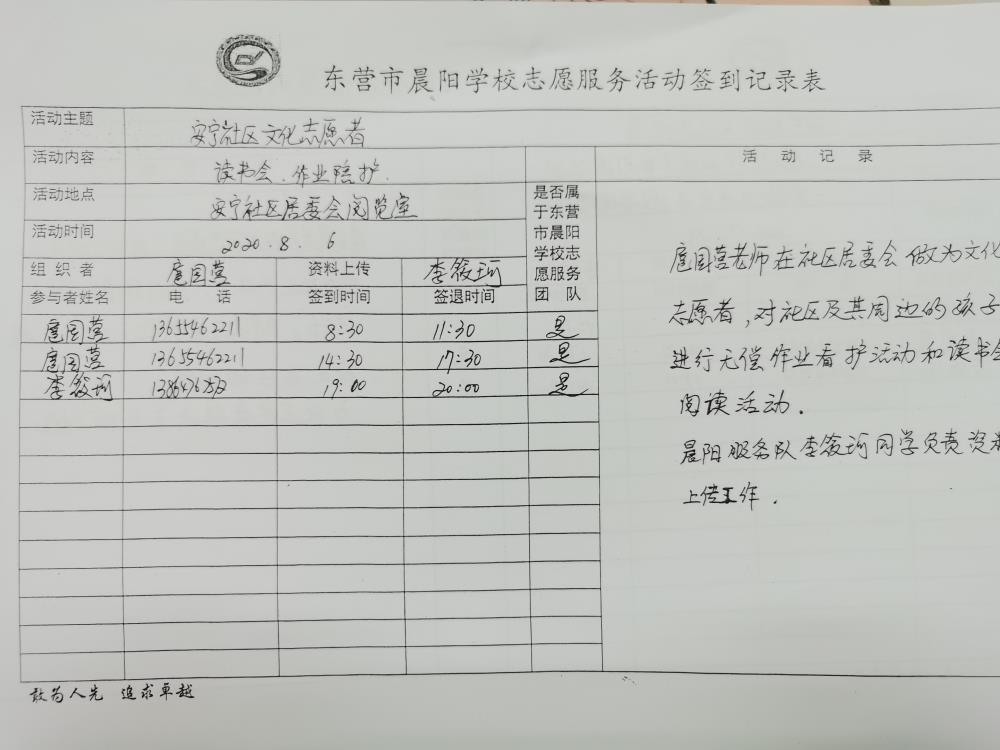 东营市晨阳学校志愿服务活动签到记录表
活动主题 安宁社区文化志愿者
活动内容 读书会、作业陪护.
活动地点 安宁社区居委会阅览室
活动时间 2020.8.6
组织者 扈国营 资料上传 李筱珂
是否属于东营市晨阳学校志愿服务团队
参与者姓名 电话 签到时间 签退时间
扈国营 13655462211 8:30 11:30 是
扈国营 13655462211 14:30 17:30 是
李筱珂 19:00 20:00 是
活动记录
扈国营老师在社区居委会做为文化
志愿者,对社区及其周边的孩子
进行无偿作业看护活动和读书会
阅读活动.
晨阳服务队李筱珂同学负责资料
上传工作.
敢为人先 追求卓越